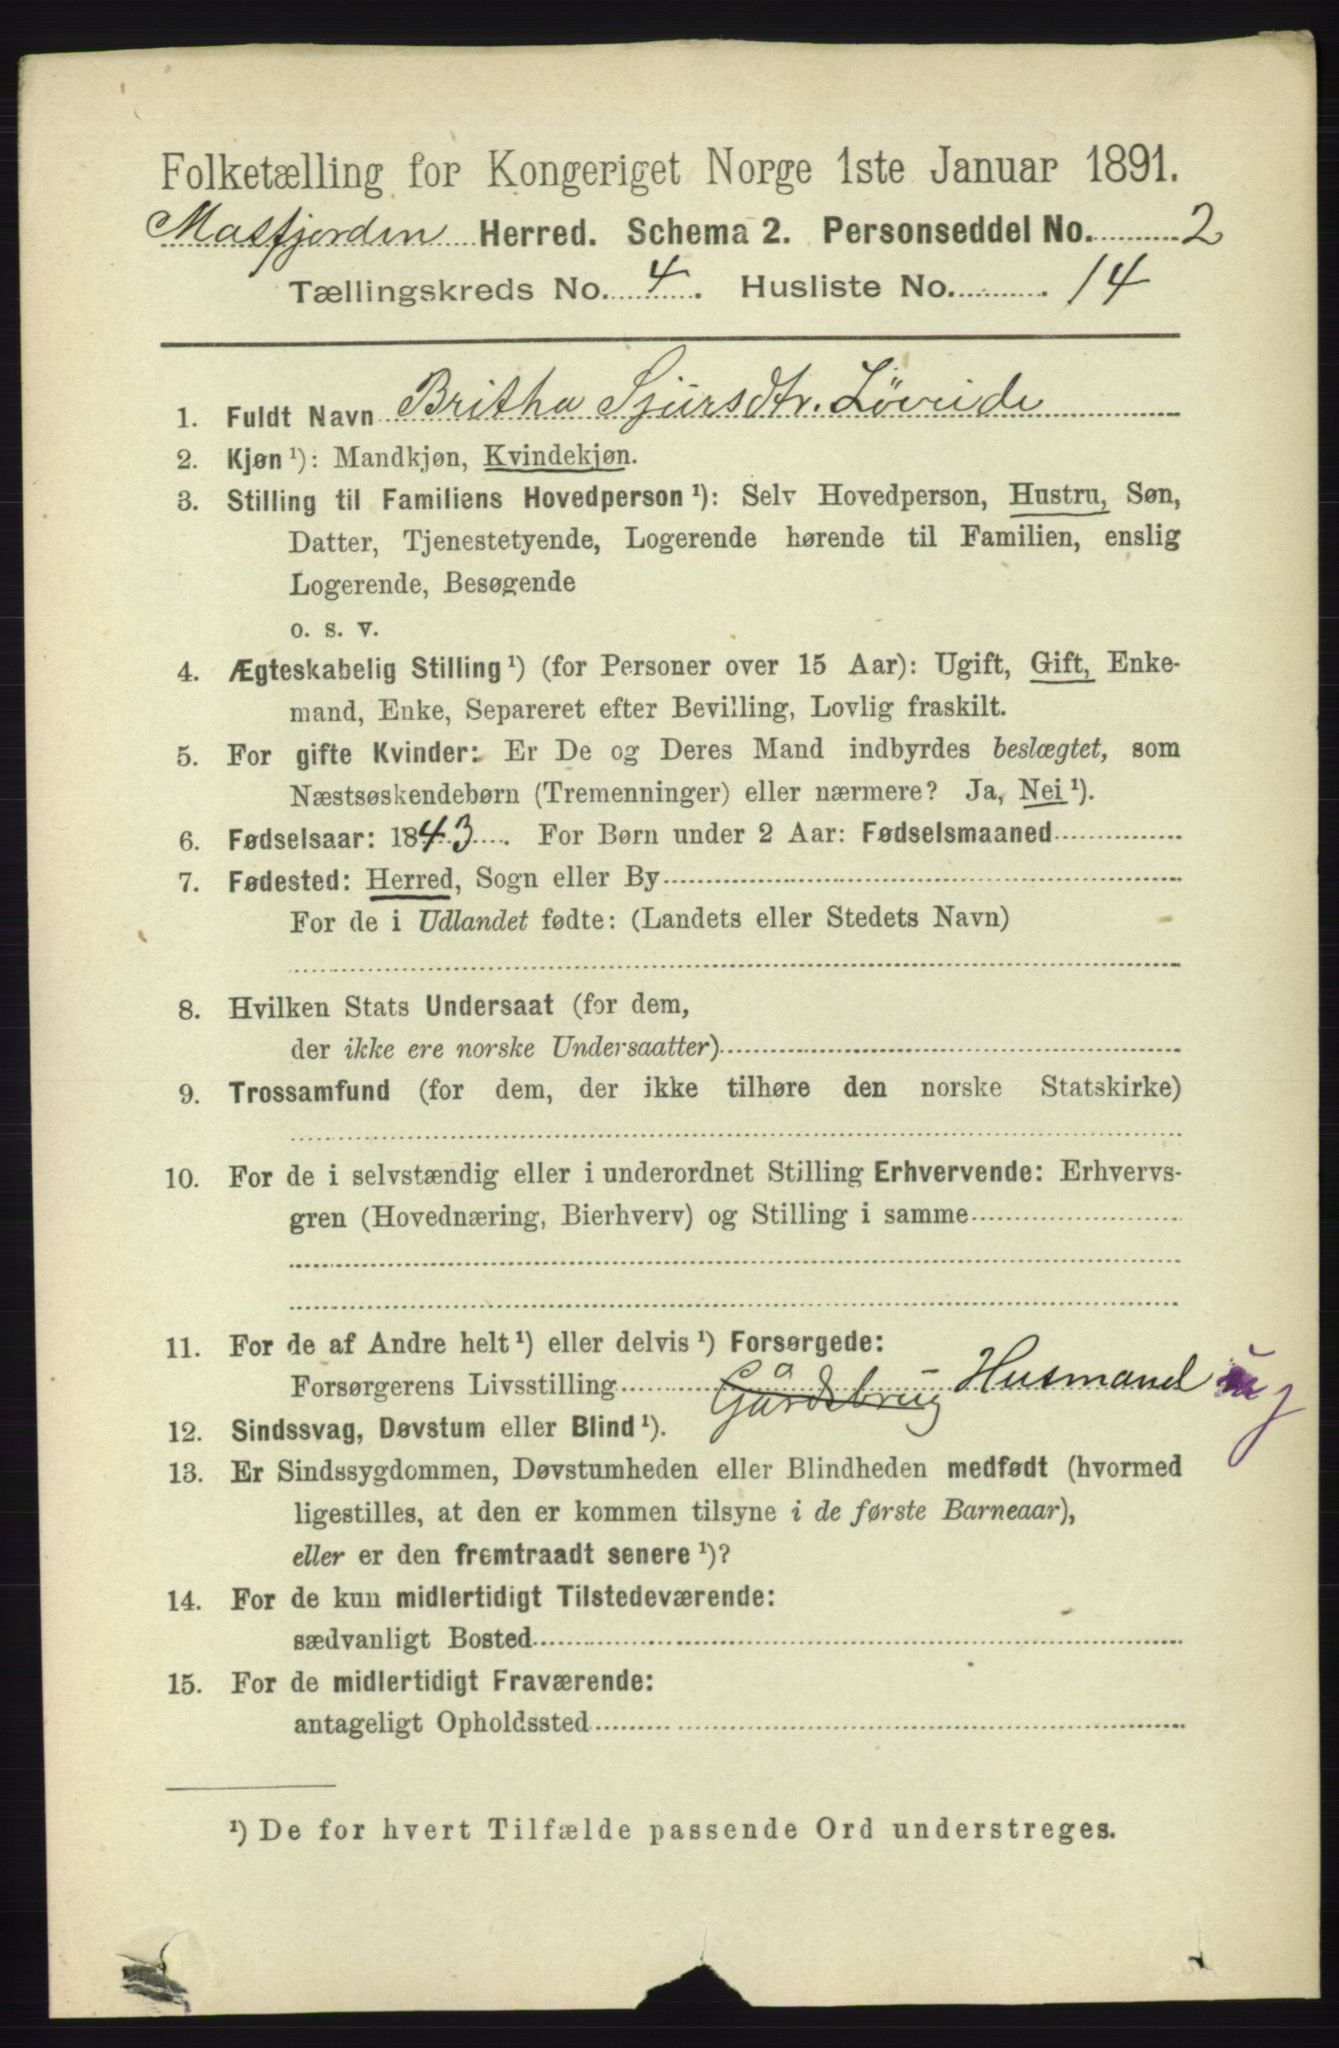 Folketælling for Kongeriget Norge 1ste Januar 1891.
Masfjorden Herred. Schema 2. Personseddel No. 2
Tællingskreds No. 4. Husliste No. 14
1. Fuldt Navn Britha Sjursdtr. Løveide
2. Kjøn¹): Mandkjøn, Kvindekjøn.
3. Stilling til Familiens Hovedperson¹): Selv Hovedperson, Hustru, Søn,
Datter, Tjenestetyende, Logerende hørende til Familien, enslig
Logerende, Besøgende
o. s. v.
4. Ægteskabelig Stilling¹) (for Personer over 15 Aar): Ugift, Gift, Enke-
mand, Enke, Separeret efter Bevilling, Lovlig fraskilt.
5. For gifte Kvinder: Er De og Deres Mand indbyrdes beslægtet, som
Næstsøskendebørn (Tremenninger) eller nærmere? Ja, Nei¹).
6. Fødselsaar: 1843. For Børn under 2 Aar: Fødselsmaaned
7. Fødested: Herred, Sogn eller By
For de i Udlandet fødte: (Landets eller Stedets Navn)
8. Hvilken Stats Undersaat (for dem,
der ikke ere norske Undersaatter)
9. Trossamfund (for dem, der ikke tilhøre den norske Statskirke)
10. For de i selvstændig eller i underordnet Stilling Erhvervende: Erhvervs-
gren (Hovednæring, Bierhverv) og Stilling i samme
11. For de af Andre helt¹) eller delvis¹) Forsørgede:
Forsørgerens Livsstilling Gårdsbrug Husmand
12. Sindssvag, Døvstum eller Blind¹).
13. Er Sindssygdommen, Døvstumheden eller Blindheden medfødt (hvormed
ligestilles, at den er kommen tilsyne i de første Barneaar),
eller er den fremtraadt senere¹)?
14. For de kun midlertidigt Tilstedeværende:
sædvanligt Bosted
15. For de midlertidigt Fraværende:
antageligt Opholdssted
¹) De for hvert Tilfælde passende Ord understreges.